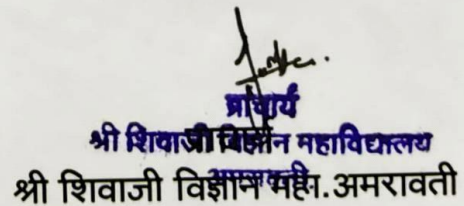 प्राचार्य
श्री शिवाजी विज्ञान महाविद्यालय
अमरावती
श्री शिवाजी विज्ञान महा.अमरावती